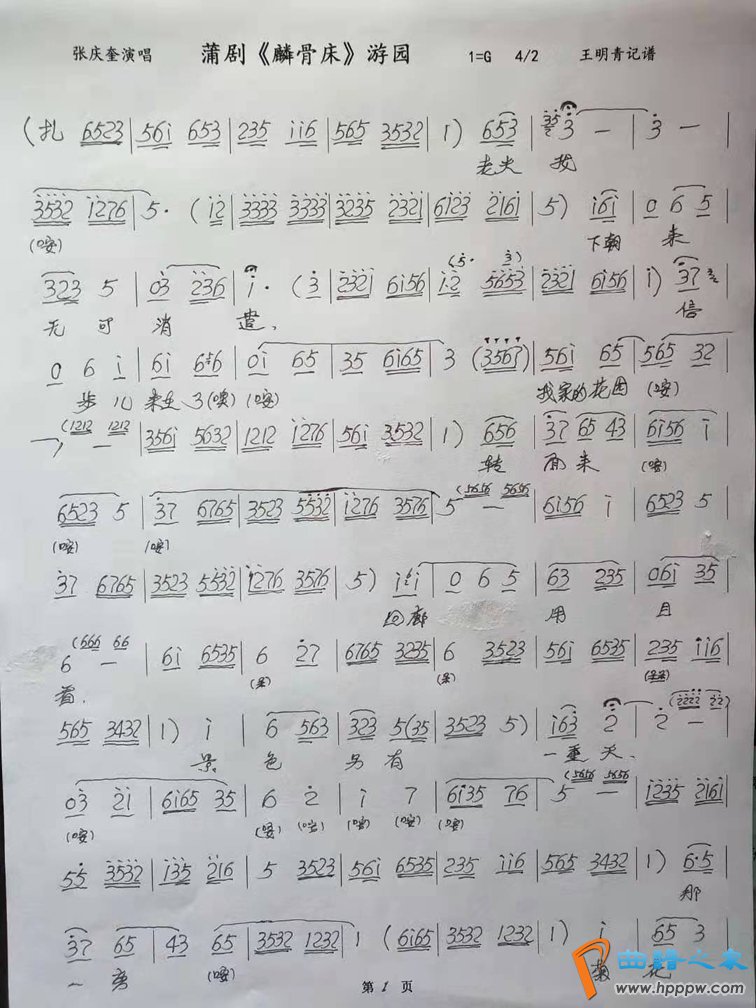 张庆奎演唱 蒲剧《麟骨床》游园 1=G 4/2 王明青记谱
(扎 6523 | 561 653 | 235 116 | 565 3532 | 1) 653 | 3 — | 3 —
老夫 我
3532 1276 | 5· (12 | 3333 3333 | 3235 2321 | 6123 2161 | 5) 161 | 0 6 5 |
(咹) 下朝 来
323 5 | 03 236 | 1· (3 | 2321 6156 | 12 5653 | 2321 6156 | 1) 37
无 可 消 遣, 信
0 6 1 | 61 6 | 01 65 | 35 6165 | 3 (3567 | 561 65 | 565 32
步儿 来至 了(噢)(咹) 我家的花园 (咹)
(1212 1212 | 3561 5632 | 1212 1276 | 561 3532 | 1) 656 | 37 65 43 | 6156 1 |
转 面来 (咹)
6523 5 | 37 6765 | 3523 5532 | 1276 3576 | 5 (5656 5656 — | 6156 1 | 6523 5
(咹) (咹)
37 6765 | 3523 5532 | 1276 3576 | 5) 1 1 | 0 6 5 | 63 235 | 061 35
回廊 用 目
6 (666 66 — | 61 6535 | 6 27 | 6765 3235 | 6 3523 | 561 6535 | 235 116
看,
565 3432 | 1) 1 | 6 563 | 323 5(35 | 3523 5) | 163 2 | 2 (2222 22 —
景 色 另 有 一重天.
03 21 | 6165 35 | 6 2 | 1 7 | 6135 76 | 5 (5656 5656 — | 1235 2161
(咹) (咹) (咹) (咹) (咹) (咹)
55 3532 | 135 216 | 5 3523 | 561 6535 | 235 116 | 565 3432 | 1) 6·5
那
37 65 | 43 65 | 3532 1232 1 | (6165 3532 1232 | 1) 1 | 65 3
一 旁 (咹) 菊 花
第 1 页
曲谱之家
www.hppw.com